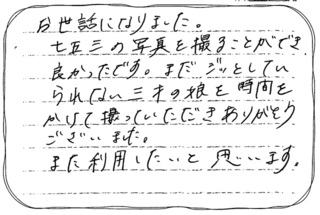 お世話になりました。
七五三の写真を撮ることができ
良かったです。まだジッとしてい
られない三才の娘を時間を
かけて撮っていただきありがとう
ございました。
また利用したいと思います。